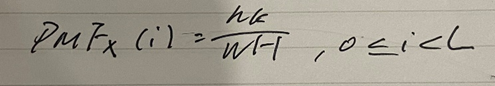 PMF_X (i) = \frac{nk}{WH} , 0 ≤ i < L